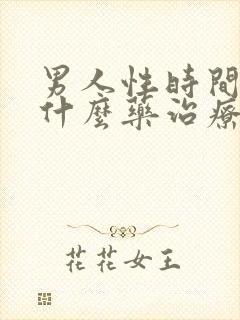 男人性時間
什麼藥治療
花花女王